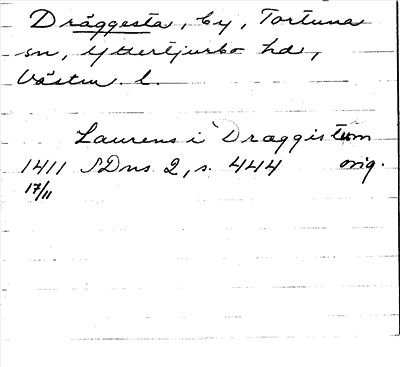 Dräggesta, by, Tortuna
sn, Yttertjurbo hd,
Västm. l.
Laurens i Draggistum
1411 SDns 2, s. 444 orig.
17/11